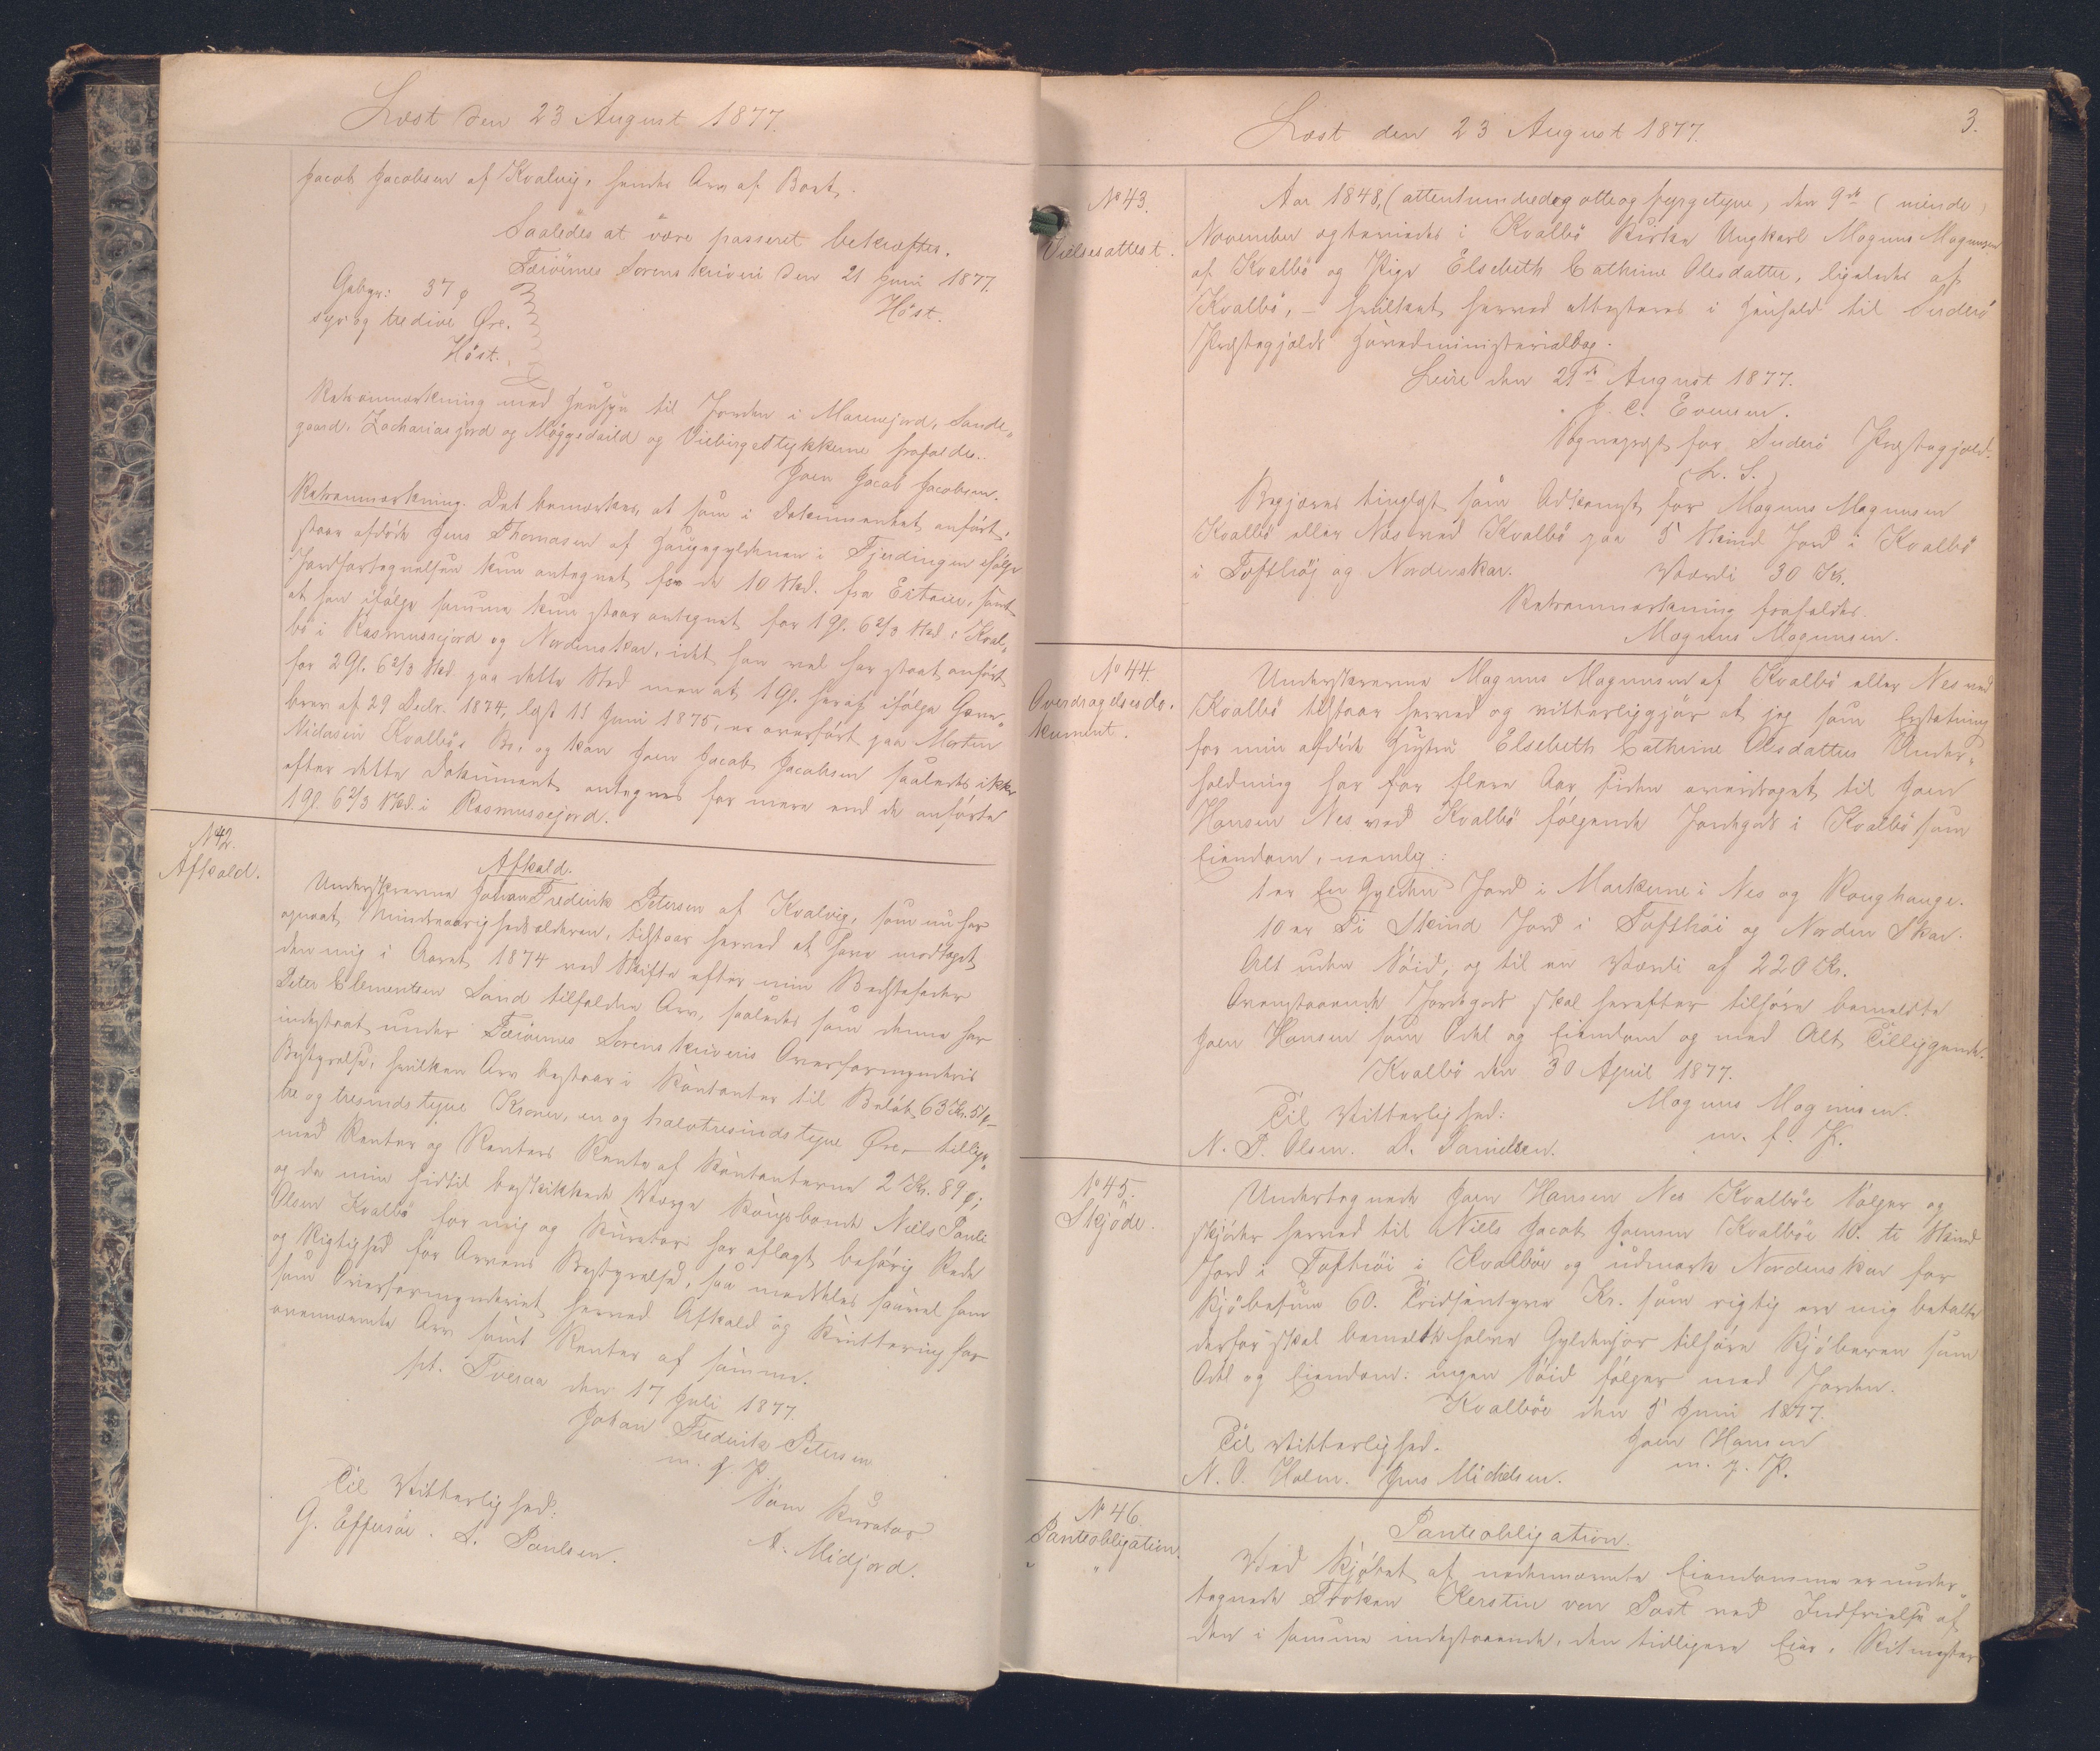 Læst den 23 August 1877.
Jacob Jacobsen af Kvalvig, hendes Arv af Boet.
Saaledes at være passeret bekræftes.
Færöernes Sorenskriveri den 21 Juni 1877.
Höst.
Gebyr: 37 ø
syv og tredive Øre.
Höst.
Retsanmærkning med Hensyn til Jorden i Marrasjord, Sande-
gaard, Zachariasjord og Møggedaild og Viebirgestykkerne frafaldes.
Joen Jacob Jacobsen.
Retsanmærkning. Det bemærkes, at som i Dokumentet anført,
staar afdøde Jens Thomasen af Haugegyldenen i Fjerdingen ifølge
Jordfortegnelsen kun antegnet for de 10 Skd. fra Eitnin, samt
at han ifølge samme kun staar antegnet for 1 Gl. 6 2/3 Skd. i Kval-
bö i Rasmussejord og Nordenskar, idet han vel har staaet anført
for 2 Gl. 6 2/3 Skd. paa dette Sted men at 1 Gl. heraf ifølge Gave-
brev af 29 Decbr. 1874, læst 11 Juni 1875, er overført paa Morten
Niclasen Kvalbö, og kan Joen Jacob Jacobsen saaledes ikke
efter dette Dokument antegnes for mere end de anførte
1 Gl. 6 2/3 Skd. i Rasmussejord.
No 42.
Afkald.
Afkald.
Underskrevne Johan Frederik Petersen af Kvalvig, som nu har
opnaaet Mindreaarighedsalderen, tilstaar herved at have modtaget
den mig i Aaret 1874 ved Skifte efter min Bedstefader
Peter Clementsen Sand tilfaldne Arv, saaledes som denne har
indestaaet under Færöernes Sorenskriveris Overformynderis
Bestyrelse, hvilken Arv bestaar i Kontanter til Beløb 63 Kr. 51 ø –
tre og tresindstyve Kroner, en og halvtresindstyve Øre – tillige-
med Renter og Renters Rente af Kontanterne 2 Kr. 89 ø;
og da min hidtil beskikkede Værge Kongsbonde Niels Pauli
Olsen Kvalbö for mig og Kurator har aflagt behørig Rede
og Rigtighed for Arvens Bestyrelse, saa meddeles saavel ham
som Overformynderiet herved Afkald og Kvittering for
ovennævnte Arv samt Renter af samme.
pt. Tveraa den 17 Juli 1877.
Johan Frederik Petersen
m. f. P.
Til Vitterlighed:
Som Kurator
G. Effersöe. S. Poulsen.
A. Midjord.
Læst den 23 August 1877.
3.
No 43.
Vielsesattest.
Aar 1848, (attenhundrede og otte og fyrgetyve) den 9de (niende)
November ægteviedes i Kvalbö Kirke Ungkarl Magnus Magnussen
af Kvalbö og Pige Elsebeth Cathrine Olesdatter, ligeledes af
Kvalbö, – hvilket herved attesteres i Henhold til Suderö
Præstegjelds Hovedministerialbog.
Leire den 21de August 1877.
J. C. Evensen.
Sognepræst for Suderö Præstegjæld.
(L. S.)
Begjæres tinglæst som Adkomst for Magnus Magnussen
Kvalbö eller Næs ved Kvalbö paa 5 Skind Jord i Kvalbö
i Tofthöj og Nordenskar. Værdi 30 Kr.
Retsanmærkning frafaldes
Magnus Magnussen.
No 44.
Overdragelsesdo-
kument.
Underskrevne Magnus Magnussen af Kvalbö eller Nes ved
Kvalbö tilstaar herved og vitterliggjør at jeg som Erstatning
for min afdøde Hustru Elsebeth Cathrine Olesdatters Under-
holdning har for flere Aar siden overdraget til Joen
Hansen Nes ved Kvalbö følgende Jordegods i Kvalbö som
Eiendom, nemlig:
1 er En Gylden Jord i Markerne i Nes og Roughauge.
10 er Ti Skind Jord i Tofthöi og Norden Skar.
Alt uden Söid, og til en Værdi af 220 Kr.
Ovenstaaende Jordegods skal herefter tilhøre bemeldte
Joen Hansen som Odel og Eiendom og med Alt Tilliggende.
Kvalbö den 30 April 1877.
Til Vitterlighed:
Magnus Magnussen.
m. f. P.
N. P. Olsen. D. Danielsen.
No 45.
Skjöde.
Undertegnede Joen Hansen Nes Kvalböe Sælger og
skjøder herved til Niels Jacob Joensen Kvalböe 10. ti Skind
Jord i Tofthöi i Kvalböe og udmark Nordenskar for
Kjöbesum 60. Tridsintyve Kr. som rigtig er mig betalte
derfor skal bemeldte halve Gyldenjor tilhøre Kjöberen som
Odel og Eiendom. ingen Söid følger med Jorden.
Kvalböe den 5 Juni 1877.
Til Vitterlighed.
Joen Hansen
m. f. P.
N. O. Holm. Jens Michelsen.
No 46.
Panteobligation.
" "
Panteobligation.
Ved Kjøbet af nedennævnte Eiendomme er under-
tegnede Frøken Kerstin von Post ved Indfrielse af
den i samme indestaaende, den tidligere Eier, Ritmester